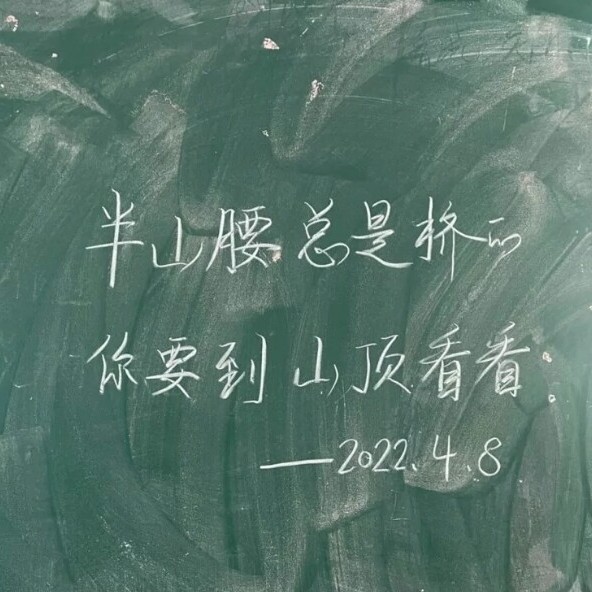 半山腰总是挤的
你要到山顶看看。
——2022.4.8